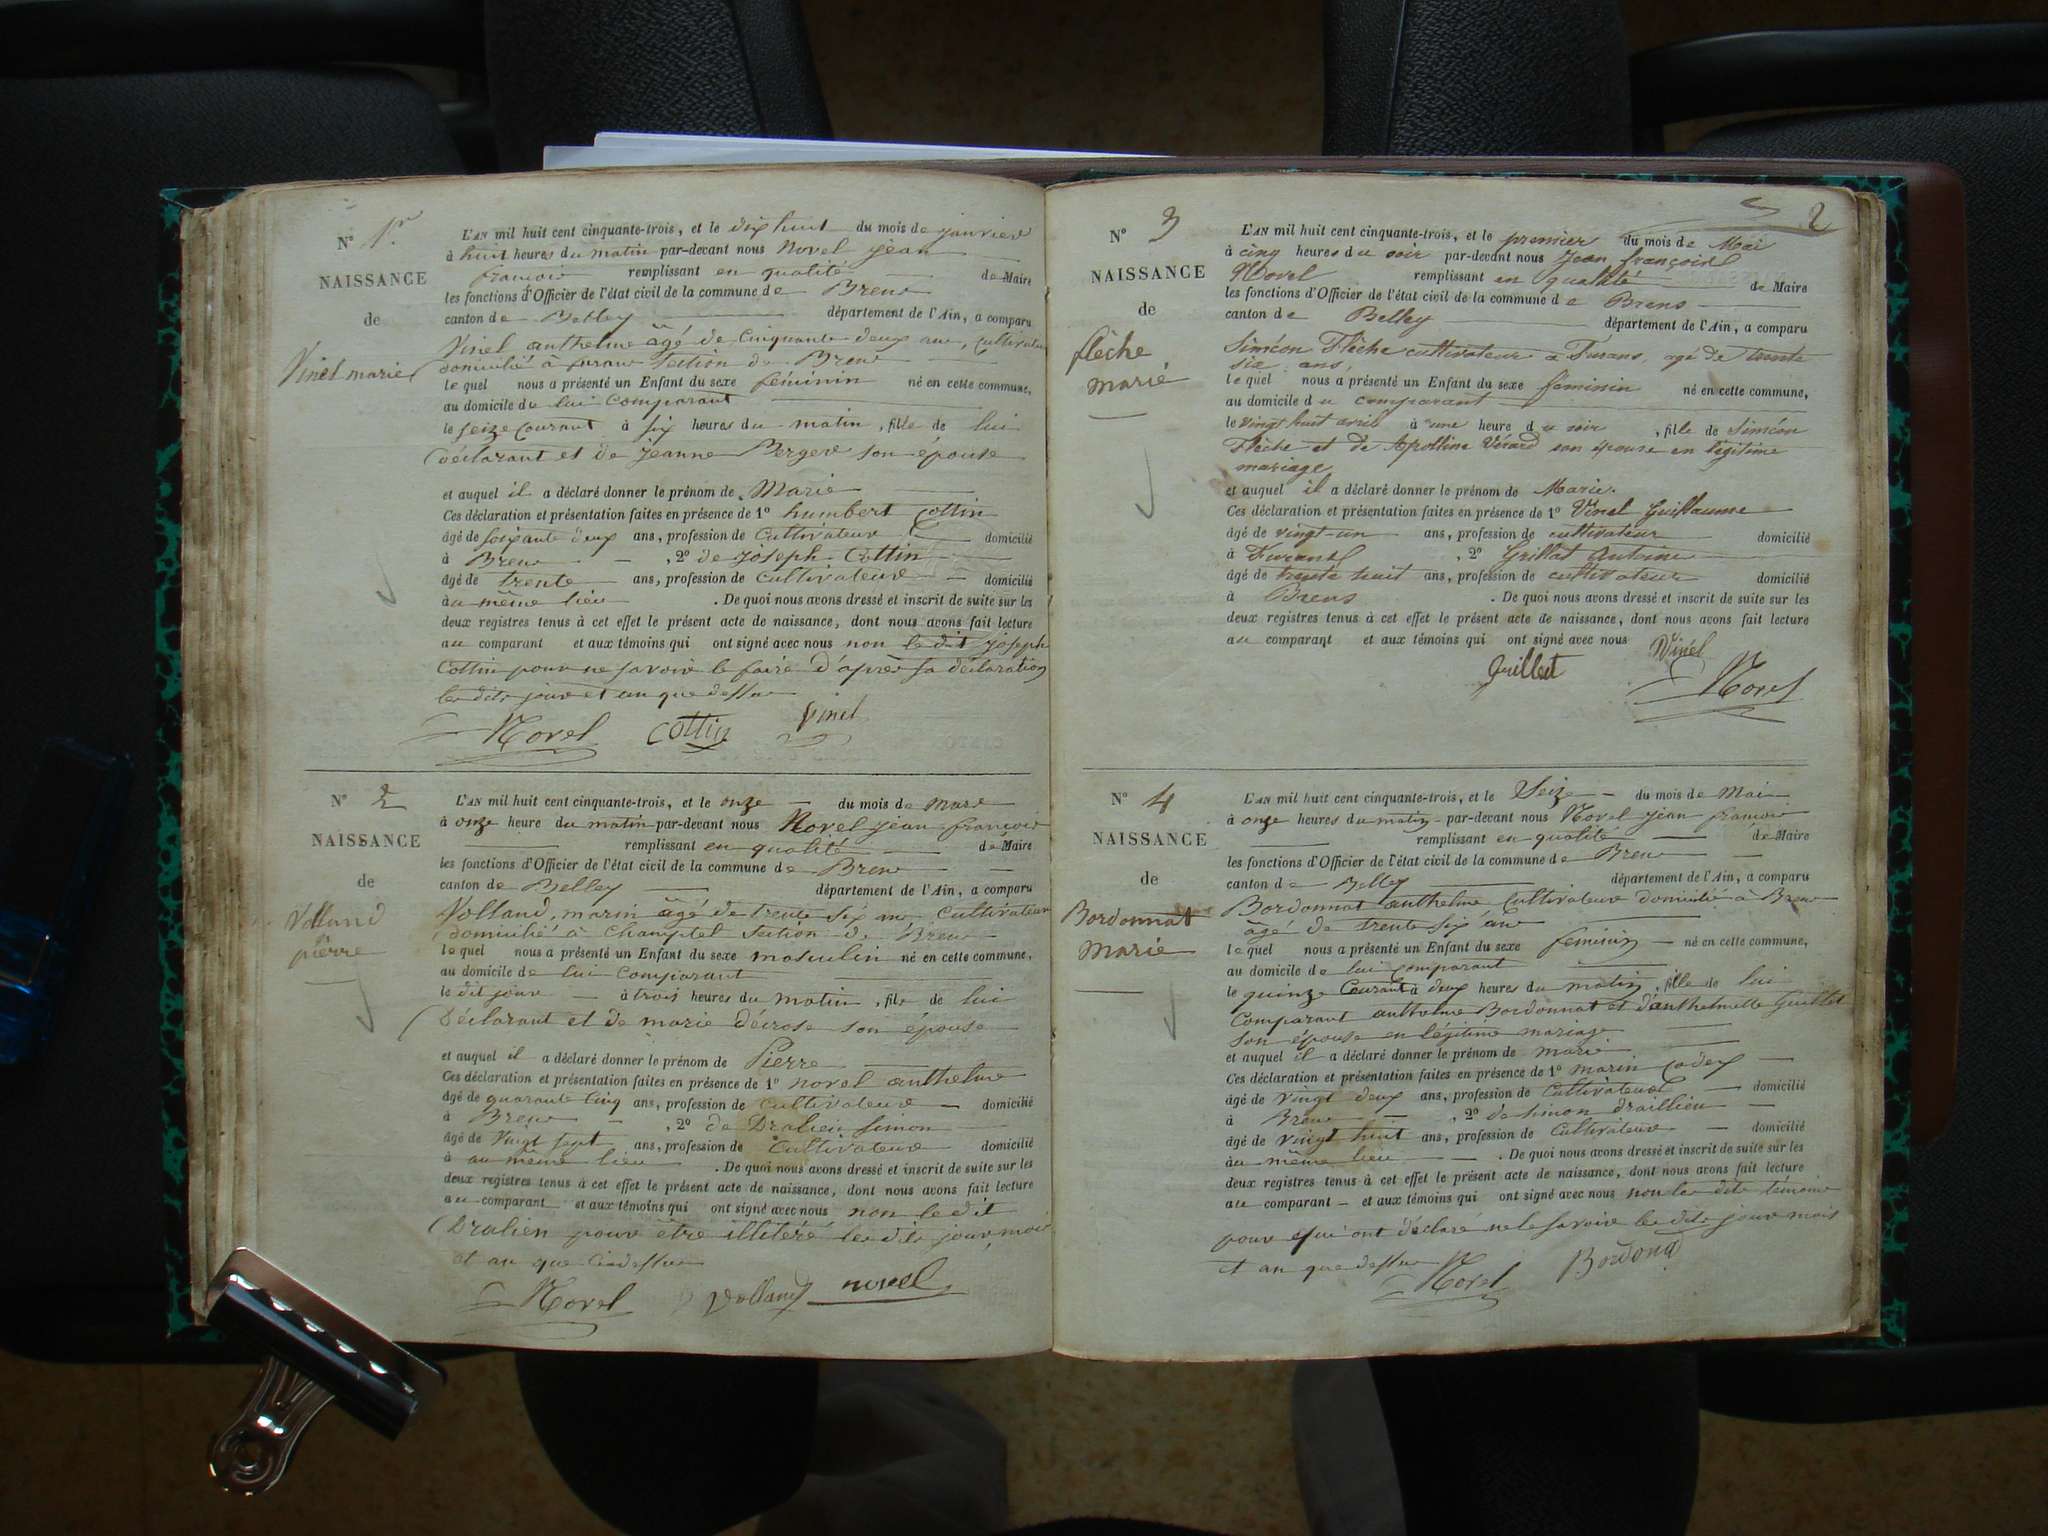 N° 1er
NAISSANCE
de
Vinel marie
L'AN mil huit cent cinquante-trois, et le dix huit du mois de janvier
à huit heures du matin par-devant nous Novel jean
françois remplissant en qualité de Maire
les fonctions d'Officier de l'état civil de la commune de Brens
canton de Belley département de l'Ain, a comparu
Vinel anthelme âgé de Cinquante deux ans, cultivateur
domicilié à furans Section de Brens
le quel nous a présenté un Enfant du sexe féminin né en cette commune,
au domicile du lui Comparant
le seize courant à six heures du matin, fille de lui
déclarant et de jeanne Berger son épouse
et auquel il a déclaré donner le prénom de Marie
Ces déclaration et présentation faites en présence de 1° humbert Cottin
âgé de soixante deux ans, profession de Cultivateur domicilié
à Brens , 2° de joseph Cottin
âgé de trente ans, profession de cultivateur domicilié
à au même lieu . De quoi nous avons dressé et inscrit de suite sur les
deux registres tenus à cet effet le présent acte de naissance, dont nous avons fait lecture
au comparant et aux témoins qui ont signé avec nous non le dit joseph
Cottin pour ne savoir le faire d'après sa déclaration
les dits jour et an que dessus
Novel Cottin Vinel
N° 2
NAISSANCE
de
Volland
pierre
L'AN mil huit cent cinquante-trois, et le onze du mois de mars
à onze heure du matin par-devant nous Novel jean françois
remplissant en qualité de Maire
les fonctions d'Officier de l'état civil de la commune de Brens
canton de Belley département de l'Ain, a comparu
Volland, marin âgé de trente six ans Cultivateur
domicilié à Champtel Section de Brens
le quel nous a présenté un Enfant du sexe masculin né en cette commune,
au domicile de lui Comparant
le dit jour à trois heures du matin, fils de lui
Déclarant et de marie décrose son épouse
et auquel il a déclaré donner le prénom de Pierre
Ces déclaration et présentation faites en présence de 1° novel anthelme
âgé de quarante cinq ans, profession de cultivateur domicilié
à Brens , 2° de Dralien simon
âgé de vingt sept ans, profession de Cultivateur domicilié
à au même lieu . De quoi nous avons dressé et inscrit de suite sur les
deux registres tenus à cet effet le présent acte de naissance, dont nous avons fait lecture
au comparant et aux témoins qui ont signé avec nous non le dit
Dralien pour être illitéré les dits jour, mois
et an que ci dessus
Novel Volland novel
2
N° 3
NAISSANCE
de
flèche
marie
L'AN mil huit cent cinquante-trois, et le premier du mois de Mai
à cinq heures du soir par-devant nous Jean françois
Novel remplissant en qualité de Maire
les fonctions d'Officier de l'état civil de la commune de Brens
canton de Belley département de l'Ain, a comparu
Siméon Flèche cultivateur à Furans, agé de trente
six ans,
le quel nous a présenté un Enfant du sexe féminin né en cette commune,
au domicile du comparant
le vingt huit avril à une heure du soir , fille de Siméon
Flèche et de Apolline Vérard son épouse en légitime
mariage
et auquel il a déclaré donner le prénom de Marie.
Ces déclaration et présentation faites en présence de 1° Vinel Guillaume
âgé de vingt-un ans, profession de cultivateur domicilié
à Furans , 2° Grillat Antoine
âgé de trente huit ans, profession de cultivateur domicilié
à Brens . De quoi nous avons dressé et inscrit de suite sur les
deux registres tenus à cet effet le présent acte de naissance, dont nous avons fait lecture
au comparant et aux témoins qui ont signé avec nous Vinel
Novel
N° 4
NAISSANCE
de
Bordonnat
Marie
L'AN mil huit cent cinquante-trois, et le Seize du mois de Mai
à onze heures du matin par-devant nous Novel jean françois
remplissant en qualité de Maire
les fonctions d'Officier de l'état civil de la commune de Brens
canton de Belley département de l'Ain, a comparu
Bordonnat anthelme Cultivateur domicilié à Brens
agé de trente six ans
le quel nous a présenté un Enfant du sexe feminin né en cette commune,
au domicile de lui comparant
le quinze Courant à deux heures du matin, fille de lui
Comparant anthelme Bordonnat et d'anthelmette Guillet
son épouse en légitime mariage
et auquel il a déclaré donner le prénom de marie
Ces déclaration et présentation faites en présence de 1° marin Codex
âgé de vingt deux ans, profession de Cultivateur domicilié
à Brens , 2° de simon draillien
âgé de vingt huit ans, profession de Cultivateur domicilié
à au même lieu . De quoi nous avons dressé et inscrit de suite sur les
deux registres tenus à cet effet le présent acte de naissance, dont nous avons fait lecture
au comparant et aux témoins qui ont signé avec nous non les dits témoins
pour qui ont déclaré ne le savoir les dits jour mois
et an que dessus
Novel Bordona